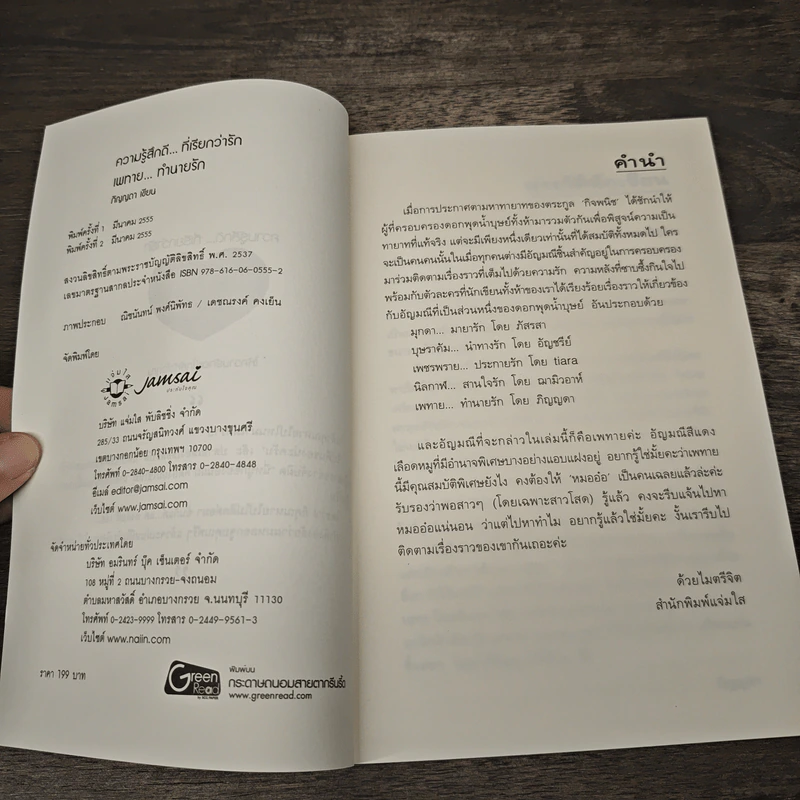 ความรู้สึกดี... ที่เรียกว่ารัก
เพทาย... ทำนายรัก
ภิญญดา เขียน
พิมพ์ครั้งที่ 1 มีนาคม 2555
พิมพ์ครั้งที่ 2 มีนาคม 2555
สงวนลิขสิทธิ์ตามพระราชบัญญัติลิขสิทธิ์ พ.ศ. 2537
เลขมาตรฐานสากลประจำหนังสือ ISBN 978-616-06-0555-2
ภาพประกอบ ณิชนันทน์ พงศ์นิพัทธ / เดชณรงค์ คงเย็น
จัดพิมพ์โดย
แจ่มใส
jamsai
jamsai
บริษัท แจ่มใส พับลิชชิ่ง จำกัด
285/33 ถนนจรัญสนิทวงศ์ แขวงบางขุนศรี
เขตบางกอกน้อย กรุงเทพฯ 10700
โทรศัพท์ 0-2840-4800 โทรสาร 0-2840-4848
อีเมล์ editor@jamsai.com
เว็บไซต์ www.jamsai.com
จัดจำหน่ายทั่วประเทศโดย
บริษัท อมรินทร์ บุ๊ค เซ็นเตอร์ จำกัด
108 หมู่ที่ 2 ถนนบางกรวย-จงถนอม
ตำบลมหาสวัสดิ์ อำเภอบางกรวย จ.นนทบุรี 11130
โทรศัพท์ 0-2423-9999 โทรสาร 0-2449-9561-3
เว็บไซต์ www.naiin.com
ราคา 199 บาท
Green Read
พิมพ์บน
กระดาษถนอมสายตากรีนรี้ด
www.greenread.com
คำนำ
เมื่อการประกาศตามหาทายาทของตระกูล 'กิจพนิช' ได้ชักนำให้
ผู้ที่ครอบครองดอกพุดน้ำบุษย์ทั้งห้ามารวมตัวกันเพื่อพิสูจน์ความเป็น
ทายาทที่แท้จริง แต่จะมีเพียงหนึ่งเดียวเท่านั้นที่ได้สมบัติทั้งหมดไป ใคร
จะเป็นคนคนนั้นในเมื่อทุกคนต่างมีอัญมณีชิ้นสำคัญอยู่ในการครอบครอง
มาร่วมติดตามเรื่องราวที่เต็มไปด้วยความรัก ความหลังที่ซาบซึ้งกินใจไป
พร้อมกับตัวละครที่นักเขียนทั้งห้าของเราได้เรียงร้อยเรื่องราวให้เกี่ยวข้อง
กับอัญมณีที่เป็นส่วนหนึ่งของดอกพุดน้ำบุษย์ อันประกอบด้วย
มุกดา... มายารัก โดย ภัสรสา
บุษราคัม... นำทางรัก โดย อัญชรีย์
เพชรพราย... ประกายรัก โดย tiara
นิลกาฬ... สานใจรัก โดย ฌามิวอาห์
เพทาย... ทำนายรัก โดย ภิญญดา
และอัญมณีที่จะกล่าวในเล่มนี้ก็คือเพทายค่ะ อัญมณีสีแดง
เลือดหมูที่มีอำนาจพิเศษบางอย่างแอบแฝงอยู่ อยากรู้ใช่มั้ยคะว่าเพทาย
นี้มีคุณสมบัติพิเศษยังไง คงต้องให้ 'หมออ๋อ' เป็นคนเฉลยแล้วล่ะค่ะ
รับรองว่าพอสาวๆ (โดยเฉพาะสาวโสด) รู้แล้ว คงจะรีบแจ้นไปหา
หมออ๋อแน่นอน ว่าแต่ไปหาทำไม อยากรู้แล้วใช่มั้ยคะ งั้นเรารีบไป
ติดตามเรื่องราวของเขากันเถอะค่ะ
ด้วยไมตรีจิต
สำนักพิมพ์แจ่มใส